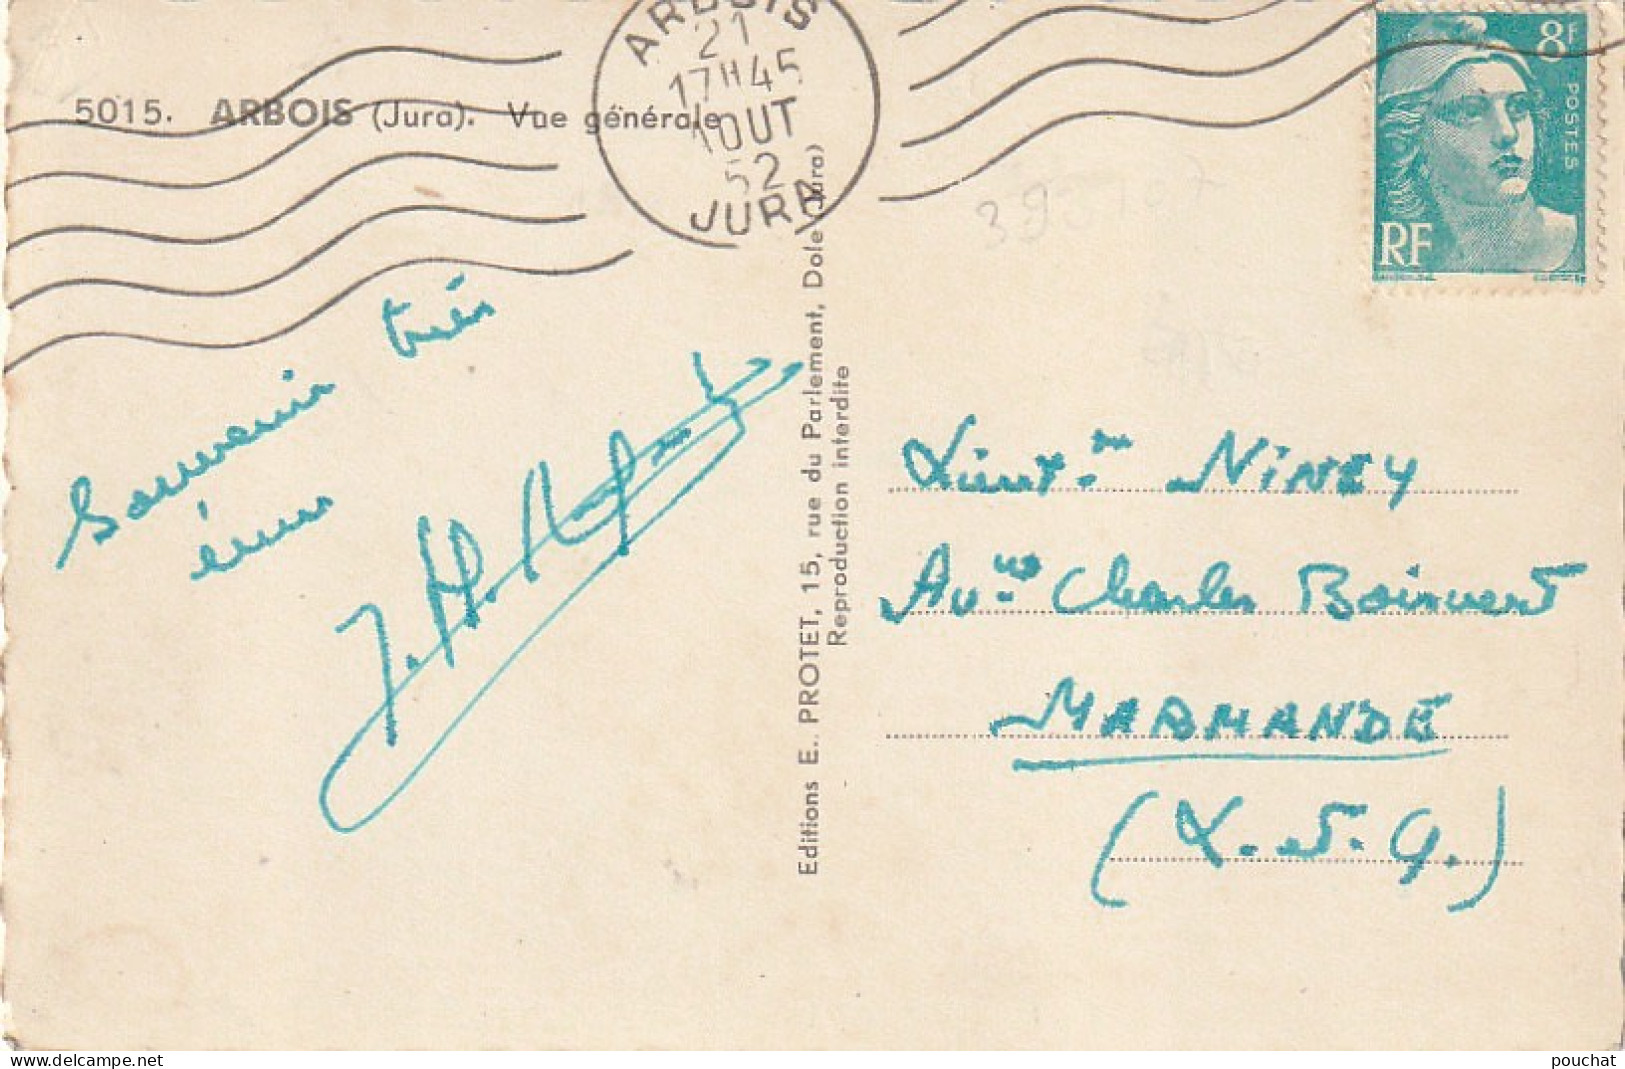 5015. ARBOIS (Jura). Vue générale
ARBOIS
21
17H45
AOUT
52
JURA
8F
POSTES
RF
Souvenir très
ému
Editions E. PROTET, 15, rue du Parlement, Dole (Jura)
Reproduction interdite
Lieut.nt NINEY
Av.ue Charles Boisvert
MARMANDE
(L.-et-G.)
delcampe.net
pouchat